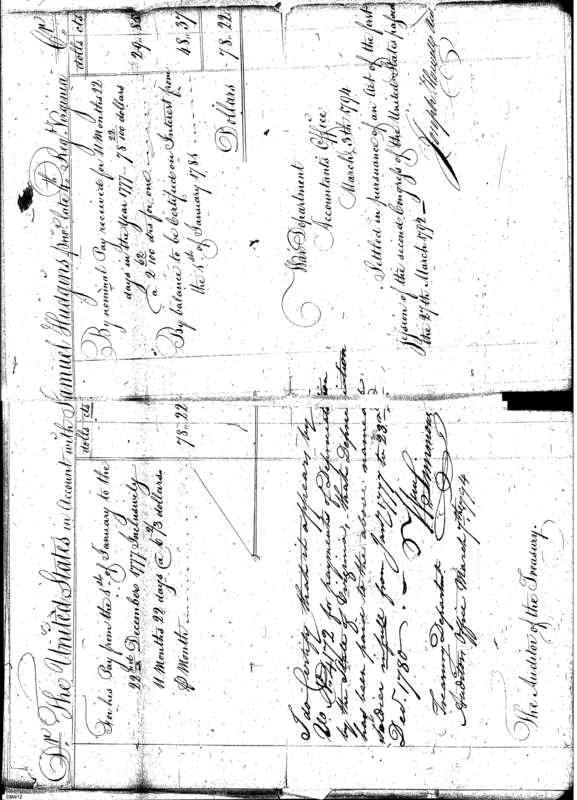 Dr. The United States in Account with Samuel Hudgins Privt. late 7th Regt. Virginia Cr.
dolls cts.
For his Pay from the 1st of January to the
22nd December 1777 Inclusively
11 Months 22 days @ 6 2/3 dollars.
⅌ Month 78.22
dolls cts.
By nominal Pay received for 11 Months 22
days in the year 1777
dollars
29.85
By balance to be Certified on Interest from
the 1st of January 178 48.37
Dollars 78.22
I do Certify that it appears by
No. 4172 for payments of depreciation
by the State of Virginia, that depreciation
has been paid to the above named
soldier himself from Jany. 1777 to 23d
Decr. 1780
Wm. Simmons
Treasury Department
Auditors Office March 1794
The Auditor of the Treasury.
War Department
Accountants Office
March 5th 1794
Settled in pursuance of an Act of the first
Session of the second Congress of the United States passed
the 27th March 1792
Joseph Howell
CBW12